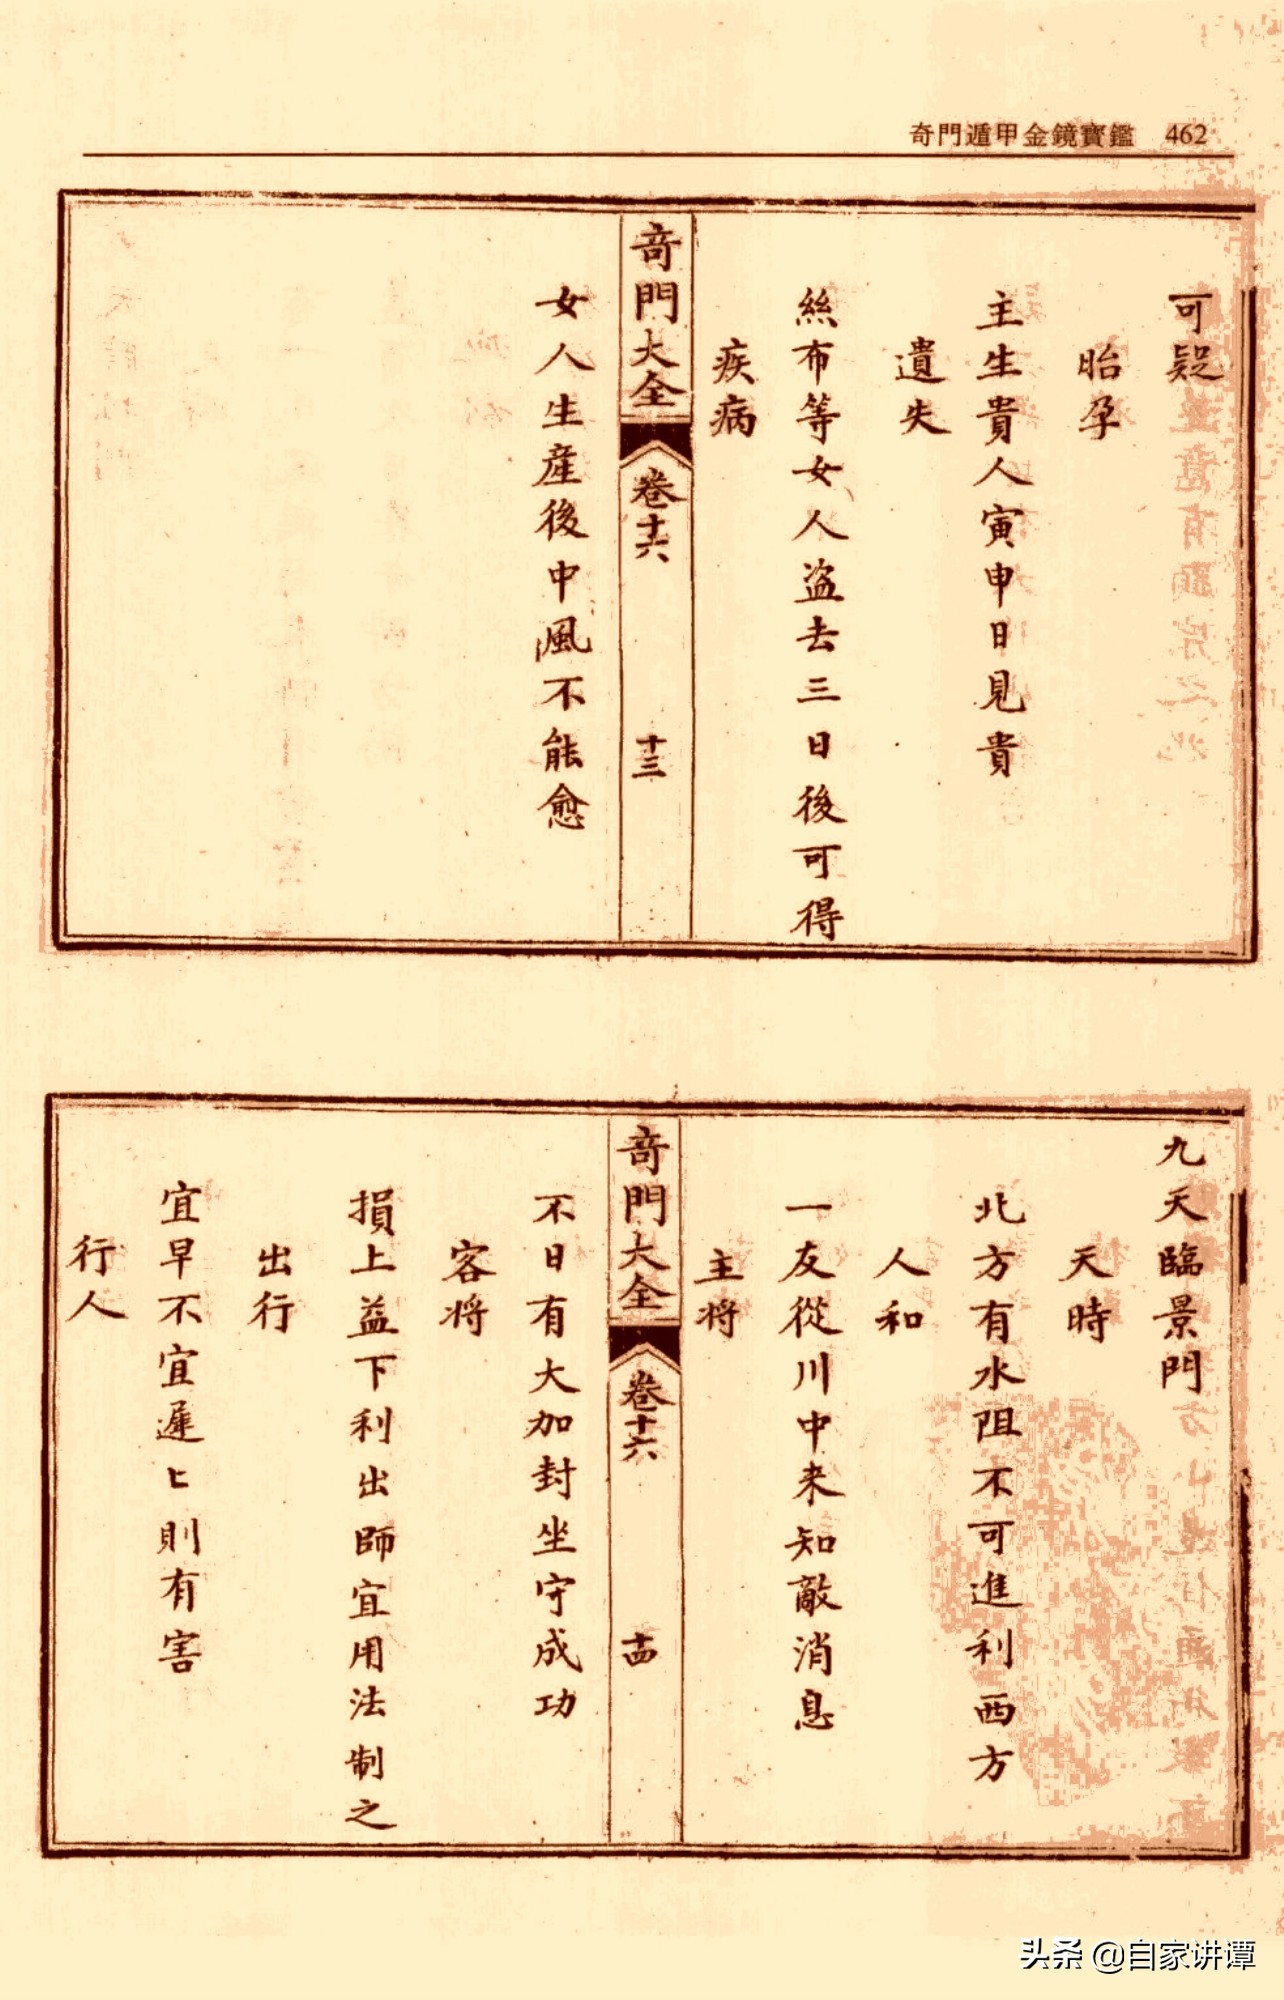 奇門遁甲金鏡寶鑑 462
可疑
胎孕
主生貴人寅申日見貴
遺失
絲布等女人盜去三日後可得
疾病
奇門大全 卷十六 十三
女人生產後中風不能愈
九天臨景門
天時
北方有水阻不可進利西方
人和
一友從川中来知敵消息
主將
奇門大全 卷十六 十四
不日有大加封坐守成功
客將
損上益下利出師宜用法制之
出行
宜早不宜遲〻則有害
行人
头条 @自家讲谭